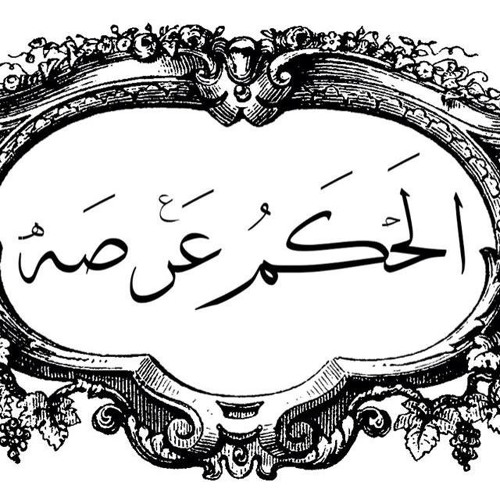 الحَكَمُ عَرَصَه